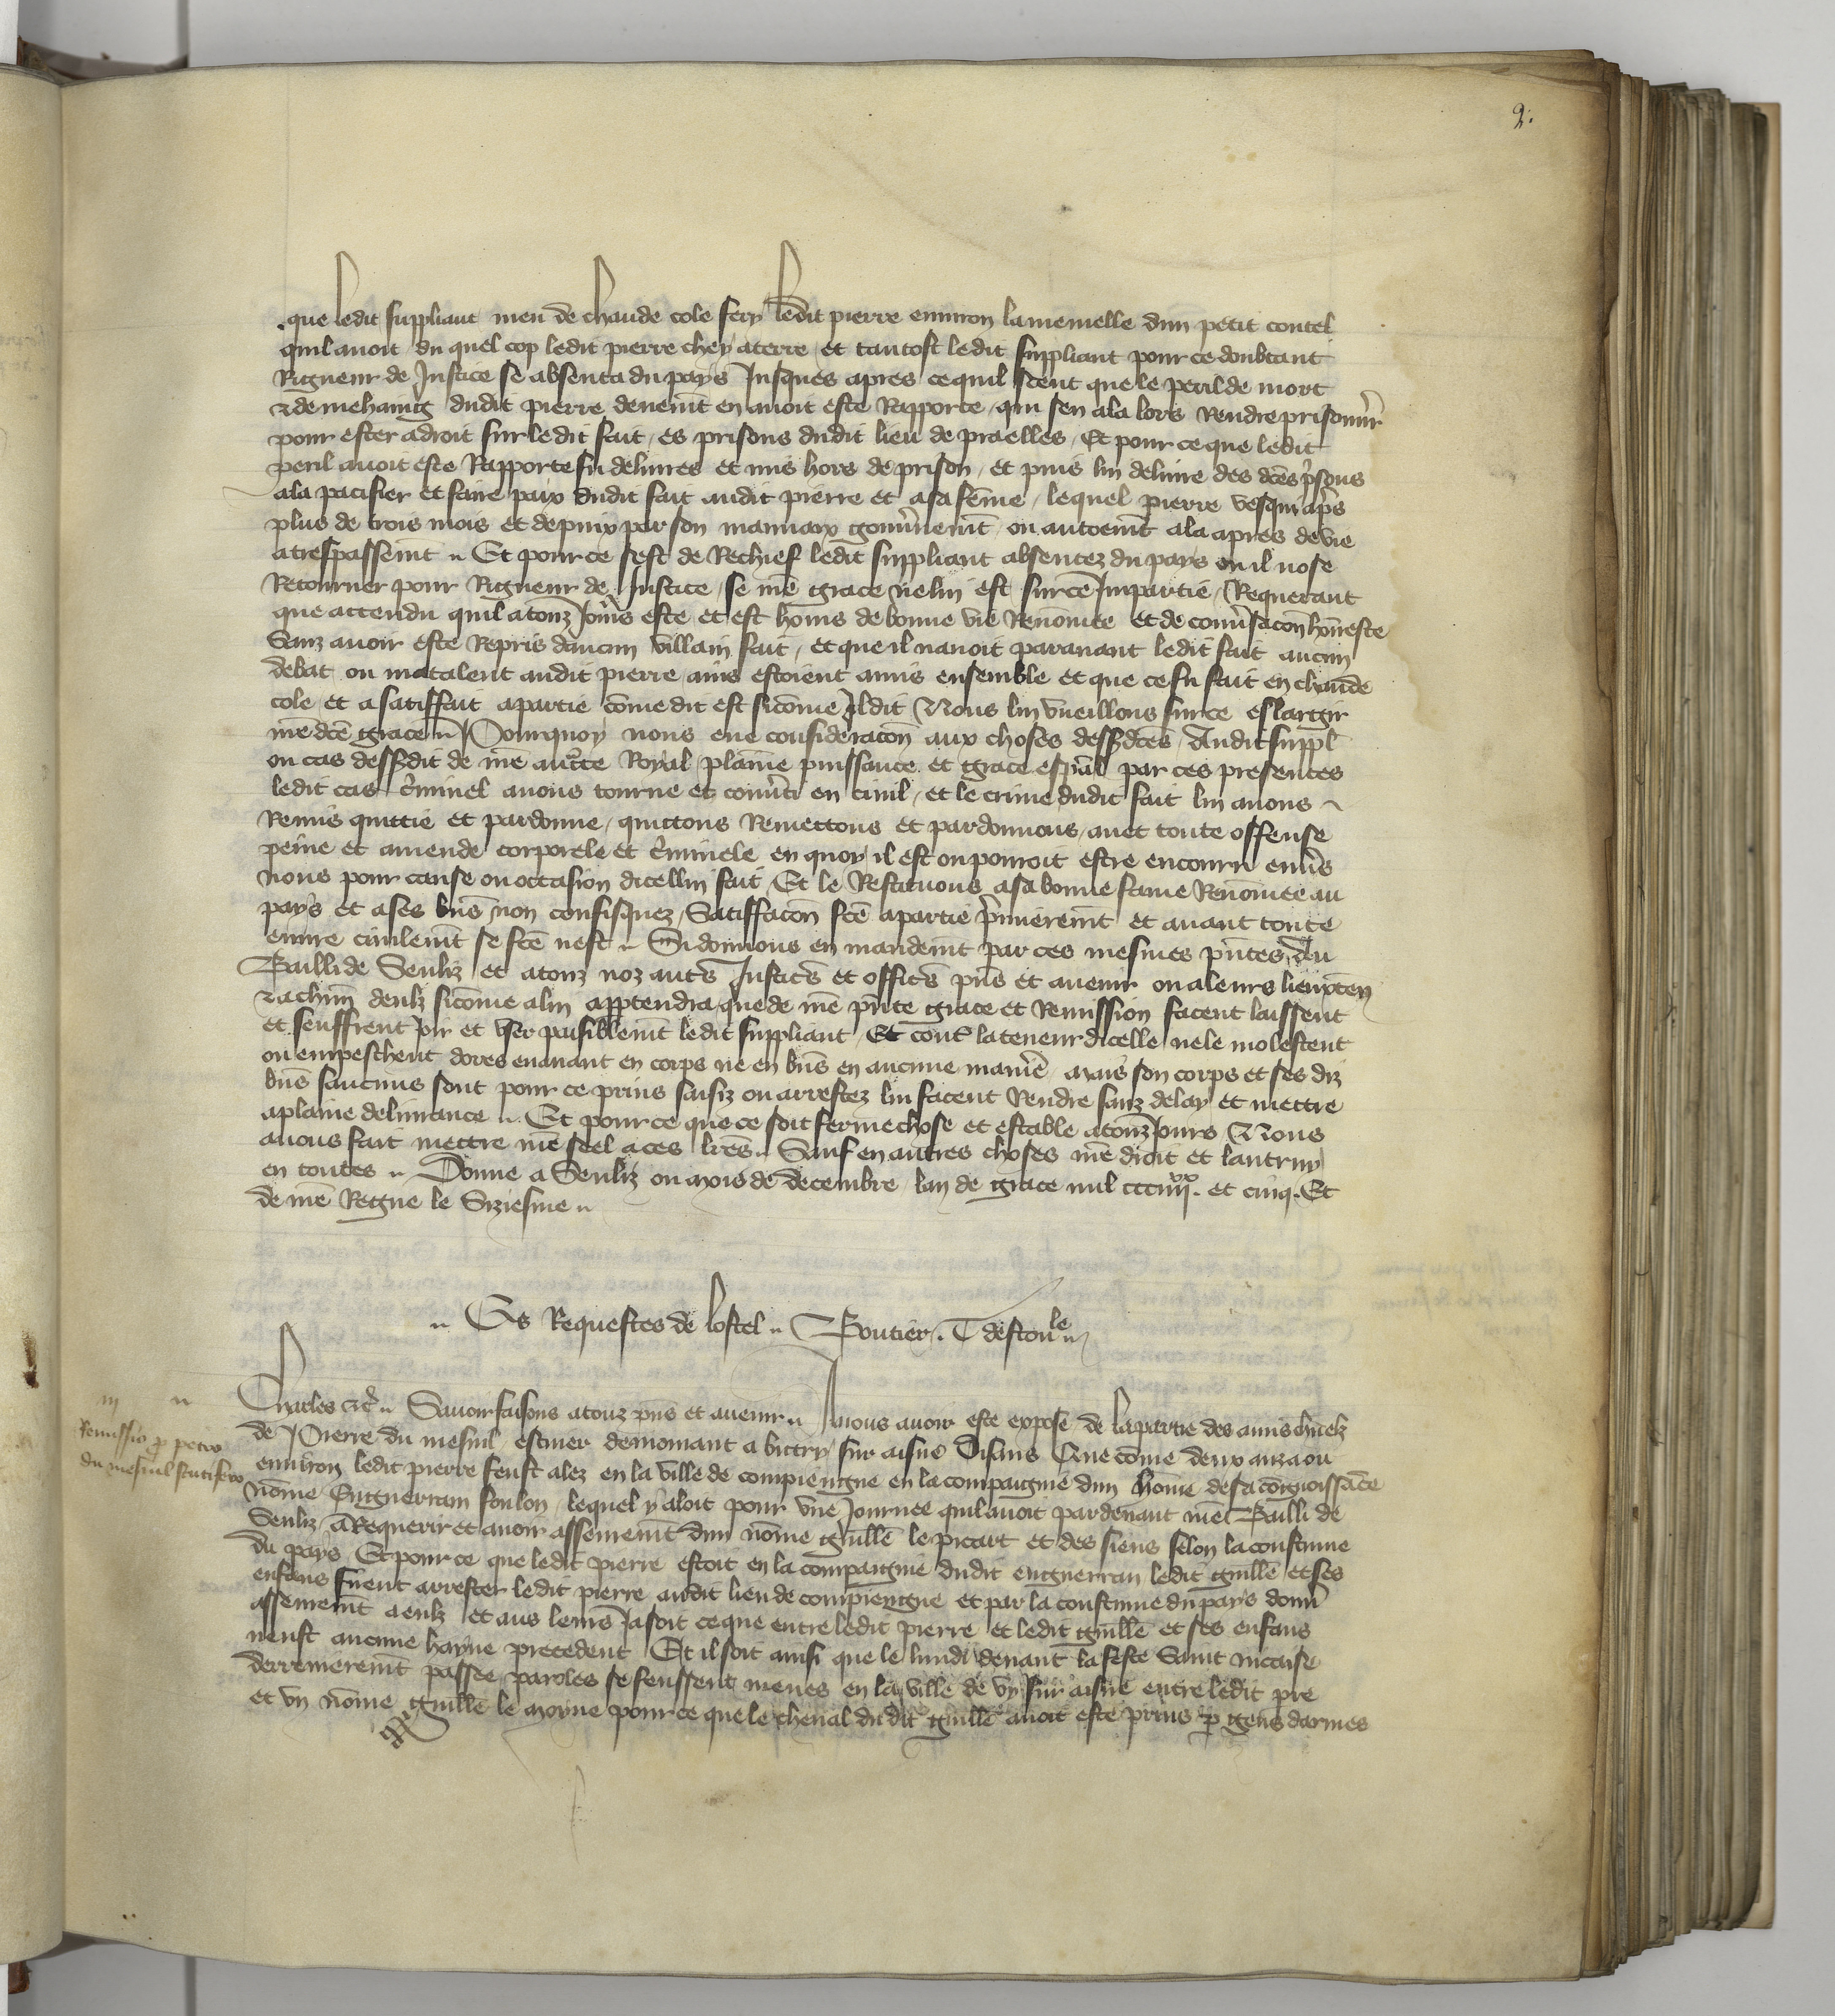 2.
que ledit suppliant meu de chaude cole fery ledit pierre environ la memelle dun petit coutel
quil avoit du quel cop ledit pierre chey a terre et tantost ledit suppliant pour ce doubtant
Rigueur de Justice se absenta du pays Jusques apres ce quil sceut que le peril de mort
et de mehaing dudit pierre devenit en avoit este Rapporte qui sen ala lors Rendre prisonnier
pour ester a droit sur ledit fait es prisons dudit lieu de praelles Et pour ce que ledit
peril avoit este Rapporte fu delivres et mis hors de prison et puis lui delivre des dces prisons
ala pacifier et faire paix dudit fait audit pierre et a sa feme lequel pierre vesqui aps
plus de trois mois et depuix par son mauvaix gouvnemt ou autremt ala apres de vie
a trespassemt Et pour ce sest de Rechief ledit suppliant absentez du pays ou il nose
Retourner pour Rigueur de Justice se nre grace ne lui est sur ce Impartie Requerant
que attendu quil a touz Jours este et est homs de bonne vie Renomee et de conversacon honneste
Sanz avoir este Repris daucun villain fait et que il navoit paravant ledit fait aucun
debat ou matalent audit pierre ains estoient amis ensemble et que ce fu fait en chaude
cole et a satiffait a partie come dit est sicome Il dit Nous lui vueillons sur ce eslargir
nre dce grace Pourquoy nous eue consideracon aux choses dessusdces Audit suppl
ou cas dessusdit de nre aucte Royal plaine puissance et grace espal par ces presentes
ledit cas cminel avons tourne et convti en civil et le crime dudit fait lui avons
Remis quittie et pardonne quittons Remettons et pardonnons avec toute offense
peine et amende corporele et cminele en quoy il est ou pouroit estre encouru envs
nous pour cause ou occasion dicellui fait Et le Restituons a sa bonne fame Renomee au
pays et a ses biens non confisquez Satiffacon fce a partie pmieremt et avant toute
euvre civilemt se fce nest Si donnons en mandemt par ces mesmes pntes Au
Bailli de Senliz et a touz noz autrs Justicrs et officrs pns et avenir ou a leurs lieuxten
et a chun deulz sicome a lui appartendra que de nre pnte grace et Remission facent laissent
et seuffrent Joir et user paisiblemt ledit suppliant Et cont la teneur dicelle ne le molestent
ou empeschent dores en avant en corps ne en biens en aucune manie mais son corps et ses diz
biens saucuns sont pour ce prins saisiz ou arrestez lui facent Rendre sanz delay et mettre
a plaine delivrance Et pour ce que ce soit ferme chose et estable a touz Jours Nous
avons fait mettre nre seel a ces lres Sauf en autres choses nre droit et lautruy
en toutes Donne a Senliz ou mois de decembre lan de grace mil ccc iiii xx et cinq Et
de nre Regne le Siziesme
Es Requestes de lostel Boutier T destoule
Charles etc Savoir faisons a touz pns et avenir A nous avoir este expose de la partie des amis chnelz
Remissio p petro
du mesnil scutifero
de Pierre du mesnil escuier demourant a bittry sur aisne Disans Que come deux anz a ou
environ ledit pierre feust alez en la ville de compiengne en la compaignie dun home de sa congnoissance
nome Enguerran foulon lequel y aloit pour une Journee quil avoit par devant nre Bailli de
Senliz a Requerir et avoir asseuremt dun nome guille le picart et des siens selon la coustume
du pays Et pour ce que ledit pierre estoit en la compaignie dudit enguerran ledit guille et ses
enfans firent arrester ledit pierre audit lieu de compiengne et par la coustume du pays donn
asseuremt a eulz et aus leurs Ja soit ce que entre ledit pierre et ledit guille et ses enfans
neust aucune hayne precedent Et il soit ainsi que le lundi devant la feste Saint nicaise
derrenieremt passee paroles se feussent meues en la ville de vy sur aisne entre ledit pre
et un nome guille le moyne pour ce que le cheval du dit guille avoit este prins p gens darmes